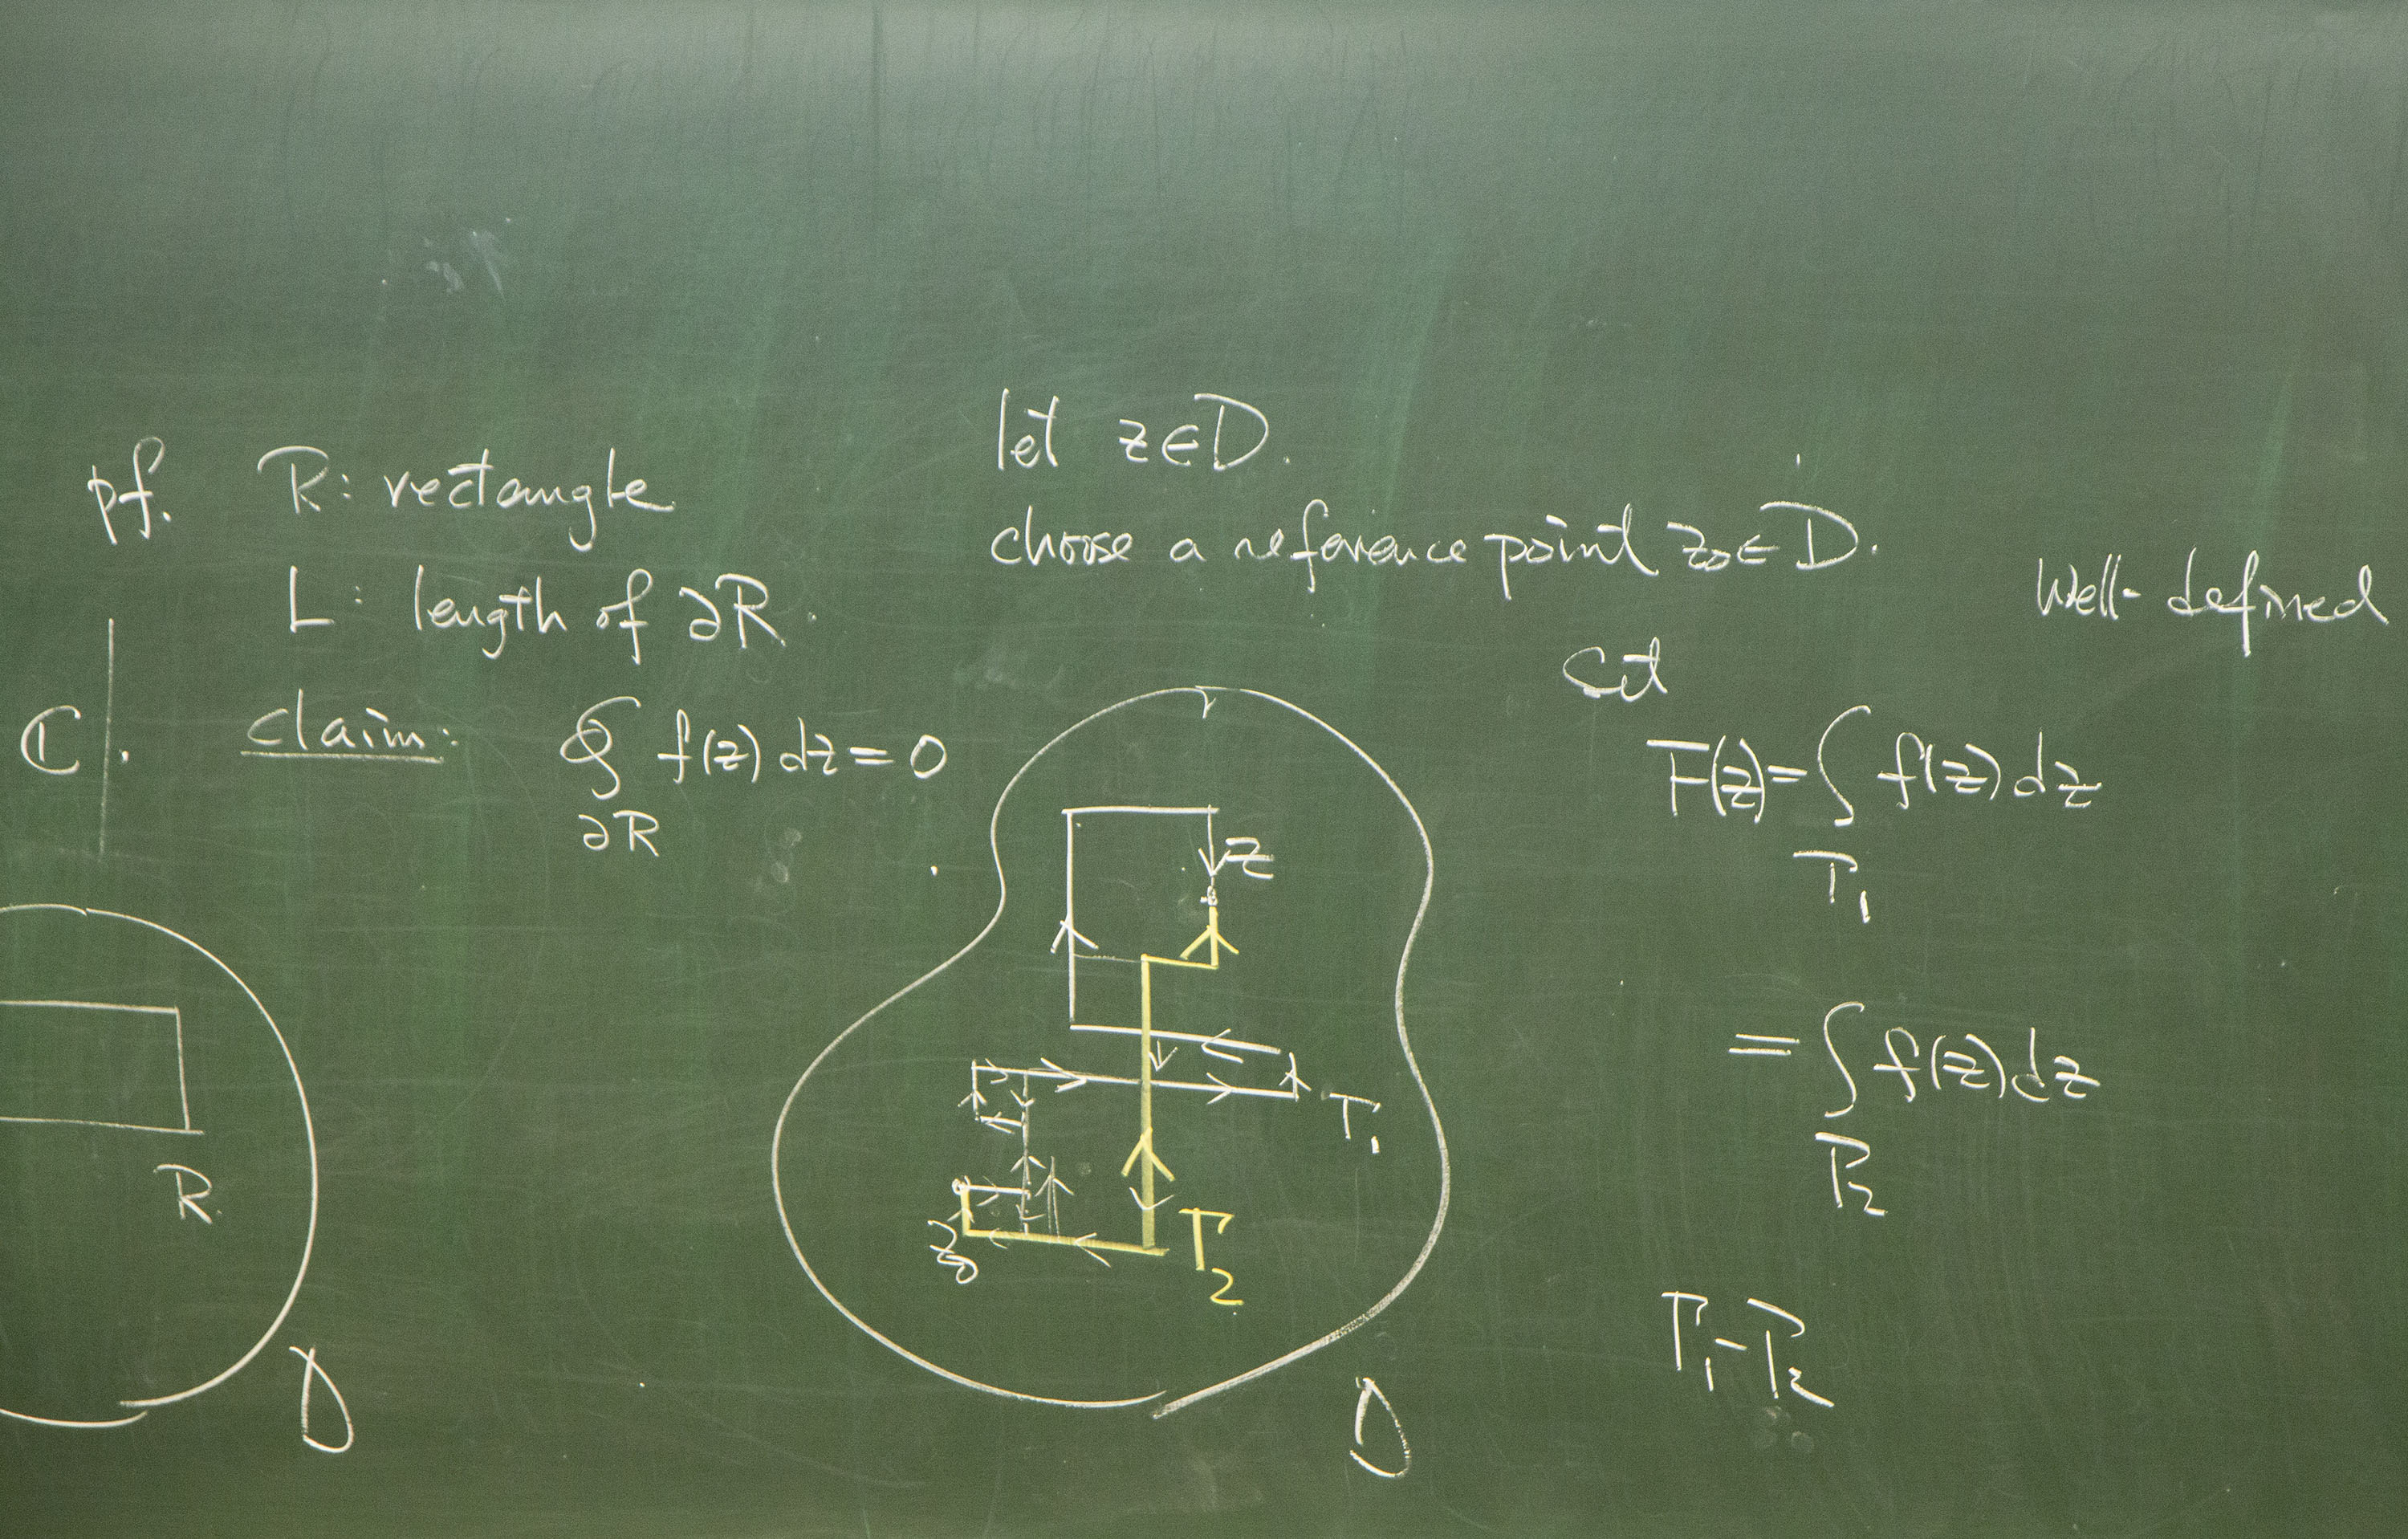 pf. R: rectangle
L: length of ∂R.
ℂ.
claim: ∮ f(z) dz = 0
∂R
R
D
let z∈D.
choose a reference point z₀∈D.
z
Γ₁
z₀
Γ₂
D
Well-defined
F(z) = ∫ f(z) dz
Γ₁
= ∫ f(z) dz
Γ₂
Γ₁-Γ₂